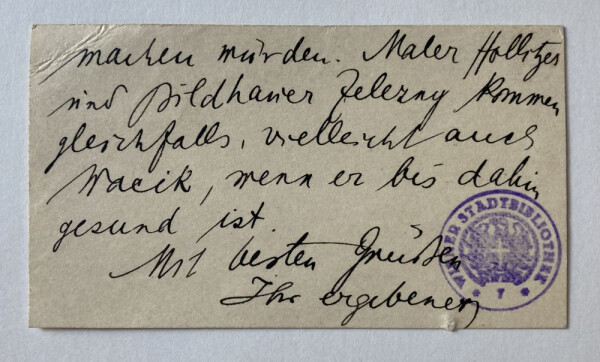 machen würden. Maler Hollitzer
und Bildhauer Zelezny kommen
gleichfalls, vielleicht auch
Wacik, wenn er bis dahin
gesund ist.
Mit besten Grüßen
Ihr ergebener
WIENER STADTBIBLIOTHEK
* 7 *